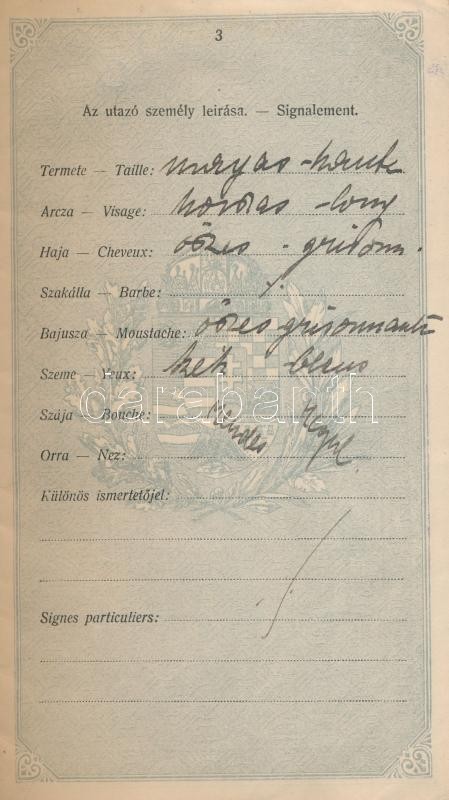 3
Az utazó személy leirása. — Signalement.
Termete — Taille: magas - haute
Arcza — Visage: hosszas - long
Haja — Cheveux: őszes - grison.
Szakálla — Barbe: /.
Bajusza — Moustache: őszes grisonnante
Szeme — Yeux: kék bleus
darabanth
Szája — Bouche: rendes regul.
Orra — Nez:
Különös ismertetőjel:
Signes particuliers: